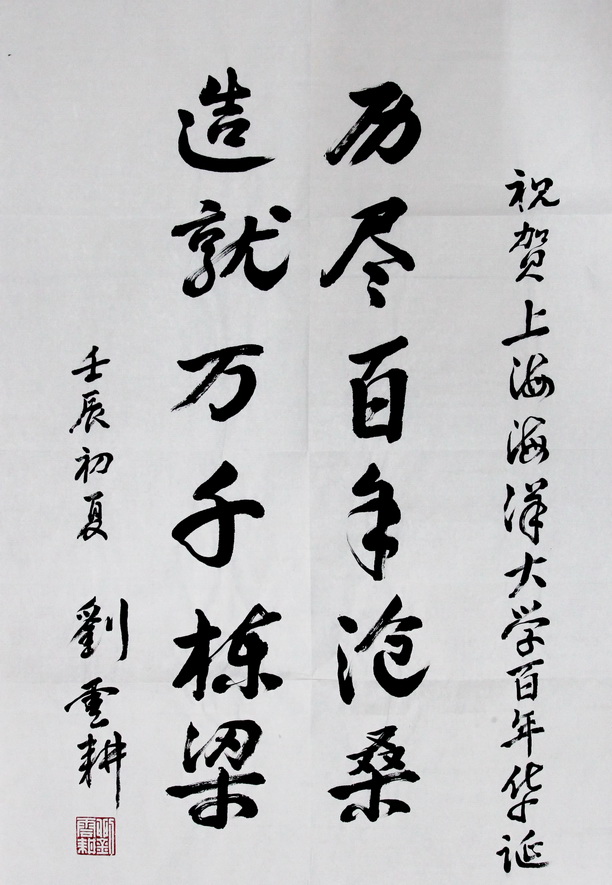 祝贺上海海洋大学百年华诞
历尽百年沧桑
造就万千栋梁
壬辰初夏 劉雲耕